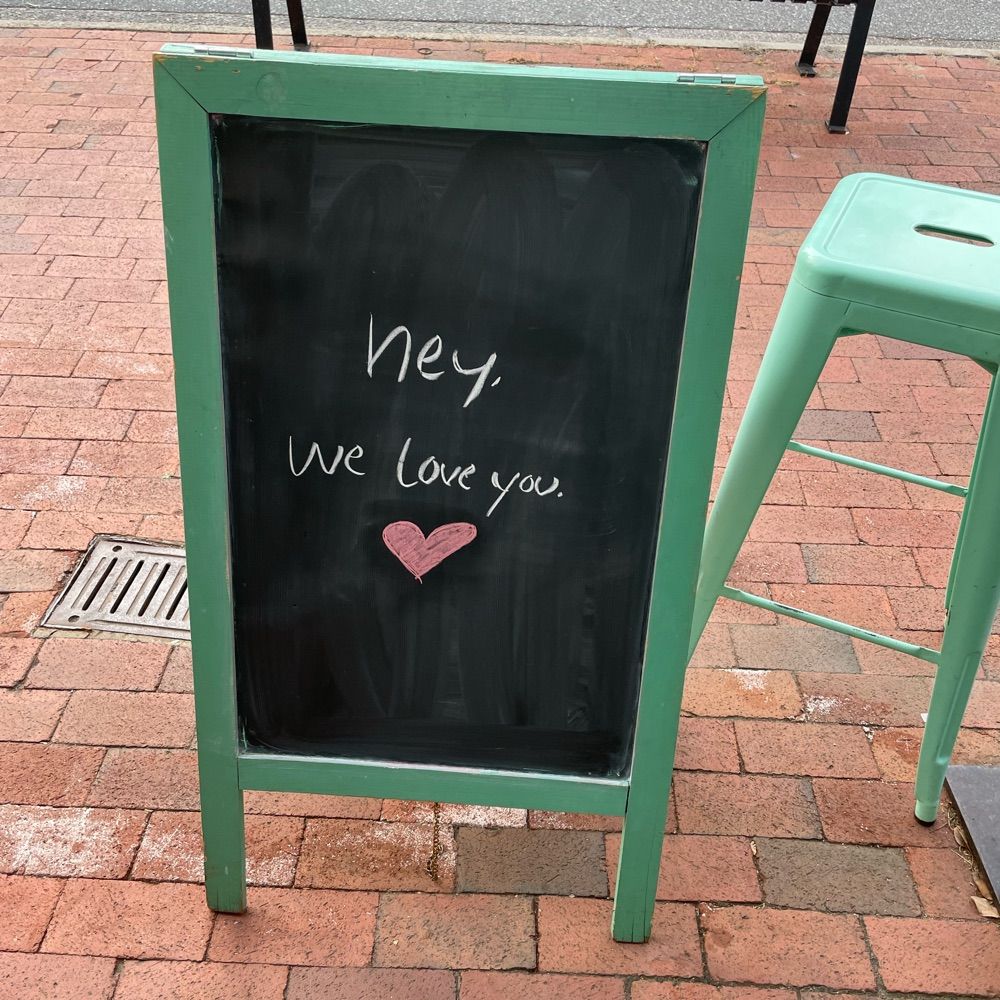 hey,
we love you.